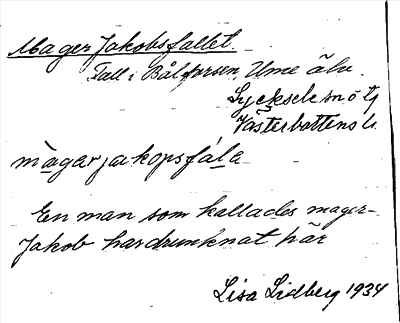 Mager Jakobsfallet.
Fall i Bålforsen, Ume älv.
Lycksele snö tg
Västerbottens l.
màgarjakopsfála
En man som kallades mager-
Jakob har drunknat här
Lisa Lidberg 1934